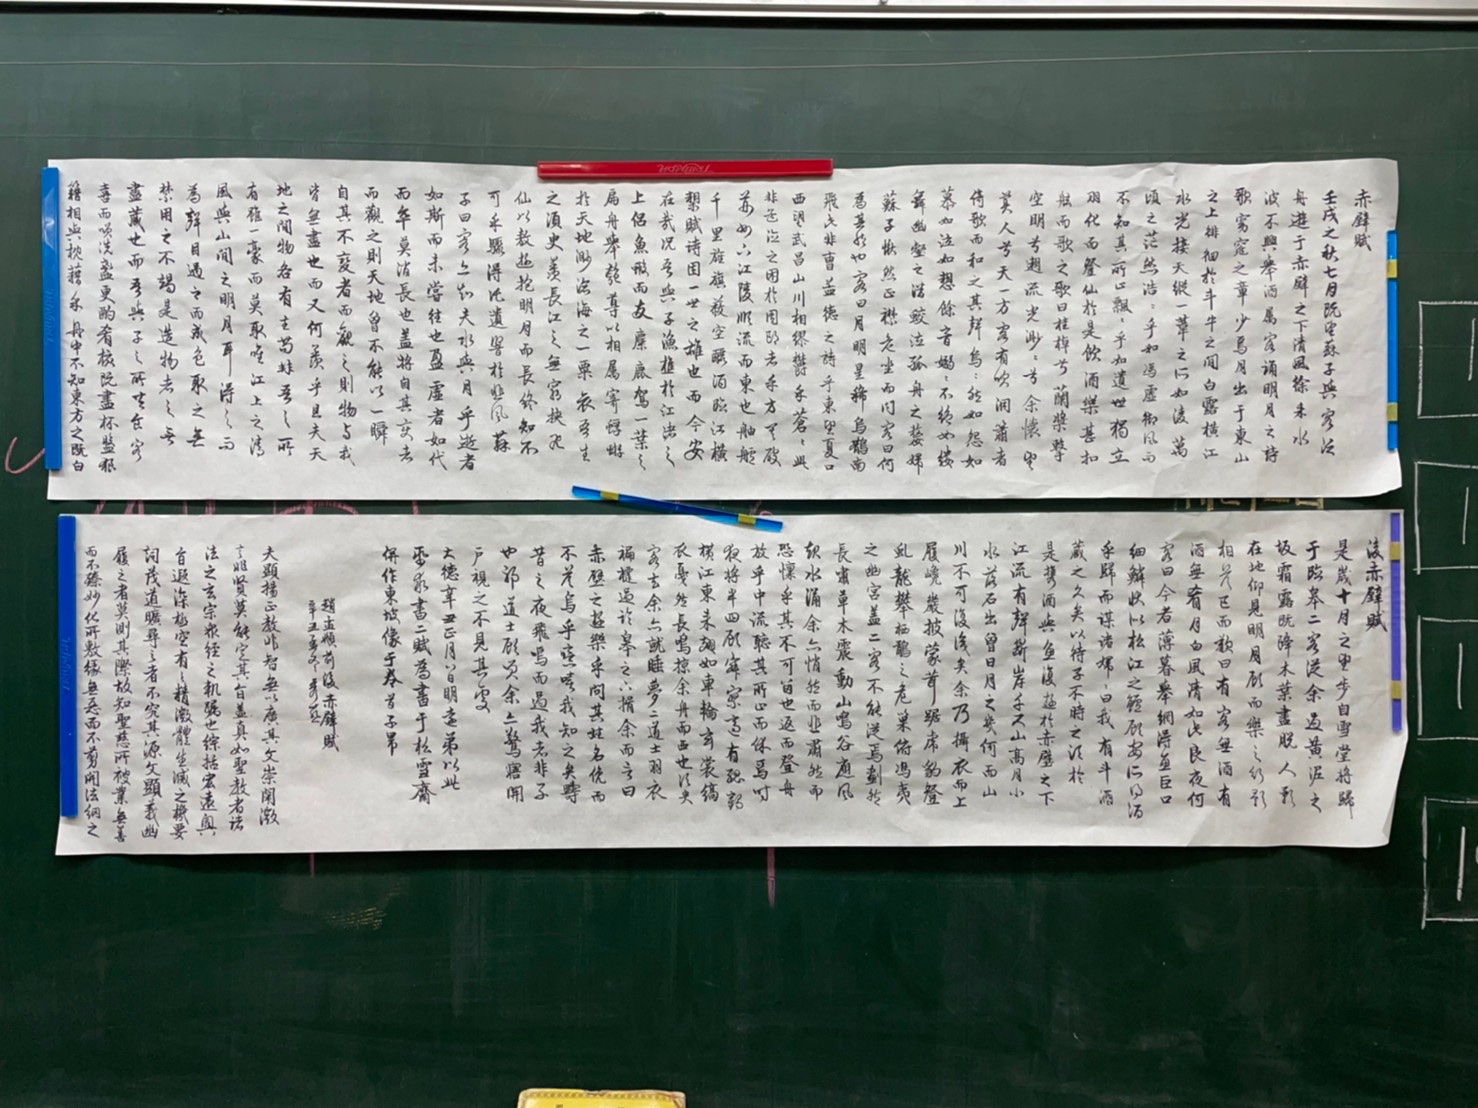 赤壁賦
壬戌之秋七月既望蘇子與客泛
舟遊于赤壁之下清風徐來水
波不興舉酒屬客誦明月之詩
歌窈窕之章少焉月出于東山
之上徘徊於斗牛之間白露橫江
水光接天縱一葦之所如淩萬
頃之茫然浩〻乎如馮虛御風而
不知其所止飄〻乎如遺世獨立
羽化而登仙於是飲酒樂甚扣
舷而歌之歌曰桂棹兮蘭槳擊
空明兮遡流光渺〻兮余懷望
美人兮天一方客有吹洞簫者
倚歌而和之其聲烏〻然如怨如
慕如泣如愬餘音嫋〻不絕如縷
舞幽壑之潛蛟泣孤舟之嫠婦
蘇子愀然正襟危坐而問客曰何
為其然也客曰月明星稀烏鵲南
飛此非曹孟德之詩乎東望夏口
西望武昌山川相繆鬱乎蒼〻此
非孟德之困於周郎者乎方其破
荊州下江陵順流而東也舳艫
千里旌旗蔽空釃酒臨江橫
槊賦詩固一世之雄也而今安
在哉況吾與子漁樵於江渚之
上侶魚蝦而友麋鹿駕一葉之
扁舟舉匏尊以相屬寄蜉蝣
於天地渺滄海之一粟哀吾生
之須臾羨長江之無窮挾飛
仙以遨遊抱明月而長終知不
可乎驟得託遺響於悲風蘇
子曰客亦知夫水與月乎逝者
如斯而未嘗往也盈虛者如代
而卒莫消長也蓋將自其變者
而觀之則天地曾不能以一瞬
自其不變者而觀之則物與我
皆無盡也而又何羨乎且夫天
地之間物各有主苟非吾之所
有雖一豪而莫取唯江上之清
風與山間之明月耳得之而
為聲目遇之而成色取之無
禁用之不竭是造物者之無
盡藏也而吾與子之所共食客
喜而笑洗盞更酌肴核既盡杯盤狼
籍相與枕藉乎舟中不知東方之既白
後赤壁賦
是歲十月之望步自雪堂將歸
于臨皋二客從余過黃泥之
坂霜露既降木葉盡脫人影
在地仰見明月顧而樂之行歌
相答已而歎曰有客無酒有
酒無肴月白風清如此良夜何
客曰今者薄暮舉網得魚巨口
細鱗狀似松江之鱸顧安所得酒
乎歸而謀諸婦〻曰我有斗酒
藏之久矣以待子不時之須於
是攜酒與魚復遊於赤壁之下
江流有聲斷岸千尺山高月小
水落石出曾日月之幾何而山
川不可復識矣余乃攝衣而上
履巉巖披蒙茸踞虎豹登
虬龍攀栖鶻之危巢俯馮夷
之幽宮蓋二客不能從焉劃然
長嘯草木震動山鳴谷應風
起水涌余亦悄然而悲肅然而
恐懍乎其不可留也返而登舟
放乎中流聽其所止而休焉時
夜將半四顧寂寥適有孤鶴
橫江東來翅如車輪玄裳縞
衣戛然長鳴掠余舟而西也須臾
客去余亦就睡夢二道士羽衣
褊褼過於臨皋之下揖余而言曰
赤壁之遊樂乎問其姓名俛而
不答烏乎噫嘻我知之矣疇
昔之夜飛鳴而過我者非子
也耶道士顧笑余亦驚寤開
戶視之不見其處
大德辛丑正月八日明遠弟以此
紙求書二賦為書于松雪齋
併作東坡像于卷首子昂
趙孟頫前後赤壁賦
大顯揚正教非智無以廣其文崇闡微
言非賢莫能定其旨蓋真如聖教者諸
法之玄宗眾經之軌躅也綜括宏遠奧
旨遐深極空有之精微體生滅之機要
詞茂道曠尋之者不究其源文顯義幽
履之者莫測其際故知聖慈所被業無善
而不臻妙化所敷緣無惡而不翦開法網之